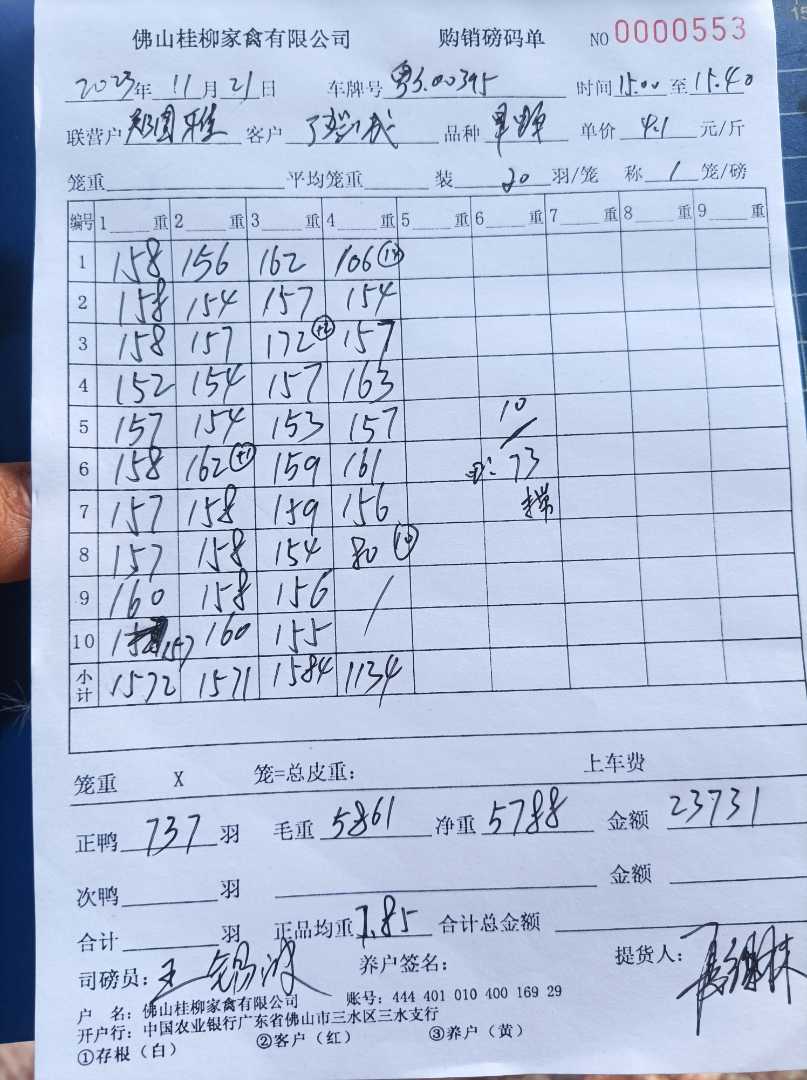 佛山桂柳家禽有限公司 购销磅码单 NO 0000553
2023年 11月 21日 车牌号 粤S.00395 时间 15.00 至 15.40
联营户 客户 品种 单价 4.1 元/斤
笼重 平均笼重 装 20 羽/笼 称 1 笼/磅
编号 1 重 2 重 3 重 4 重 5 重 6 重 7 重 8 重 9 重
1 158 156 162 106
2 158 154 157 154
3 158 157 172 +2 157
4 152 154 157 163
5 157 154 153 157 10
6 158 162 +1 159 161 73
7 157 158 159 156
8 157 158 154 80
9 160 158 156 /
10 157 160 155
小计 1572 1571 1584 1134
笼重 X 笼=总皮重: 上车费
正鸭 737 羽 毛重 5861 净重 5788 金额 23731
次鸭 羽 金额
合计 羽 正品均重 7.85 合计总金额
司磅员: 养户签名: 提货人:
户 名: 佛山桂柳家禽有限公司 账号: 444 401 010 400 169 29
开户行: 中国农业银行广东省佛山市三水区三水支行
①存根（白） ②客户（红） ③养户（黄）